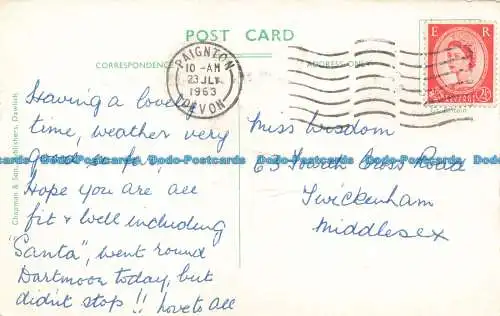 POST CARD
CORRESPONDENCE
ADDRESS ONLY
PAIGNTON
10 - AM
23 JLY
1963
DEVON
E R
Having a lovely
time, weather very
good so far,
Hope you are all
fit & well including
"Santa", went round
Dartmoor today, but
didn't stop!! love to all
Miss Wisdom
63 South Cross Road
Twickenham
Middlesex
Chapman & Son, Publishers, Dawlish.
Bodo-Postcards Bodo-Postcards Bodo-Postcards Bodo-Postcards